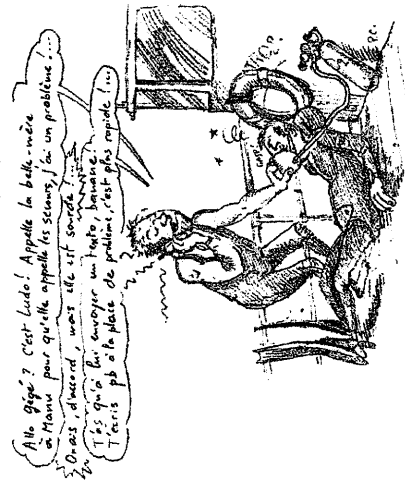 Allo gégé ? C'est Ludo ! Appelle la belle-mère
à Manu pour qu'elle appelle les secours, j'ai un problème !...
Ouais, d'accord, mais elle est sourde !
T'as qu'à lui envoyer un texto, banane !
T'écris pb à la place de problème, c'est plus rapide !...
P.C.